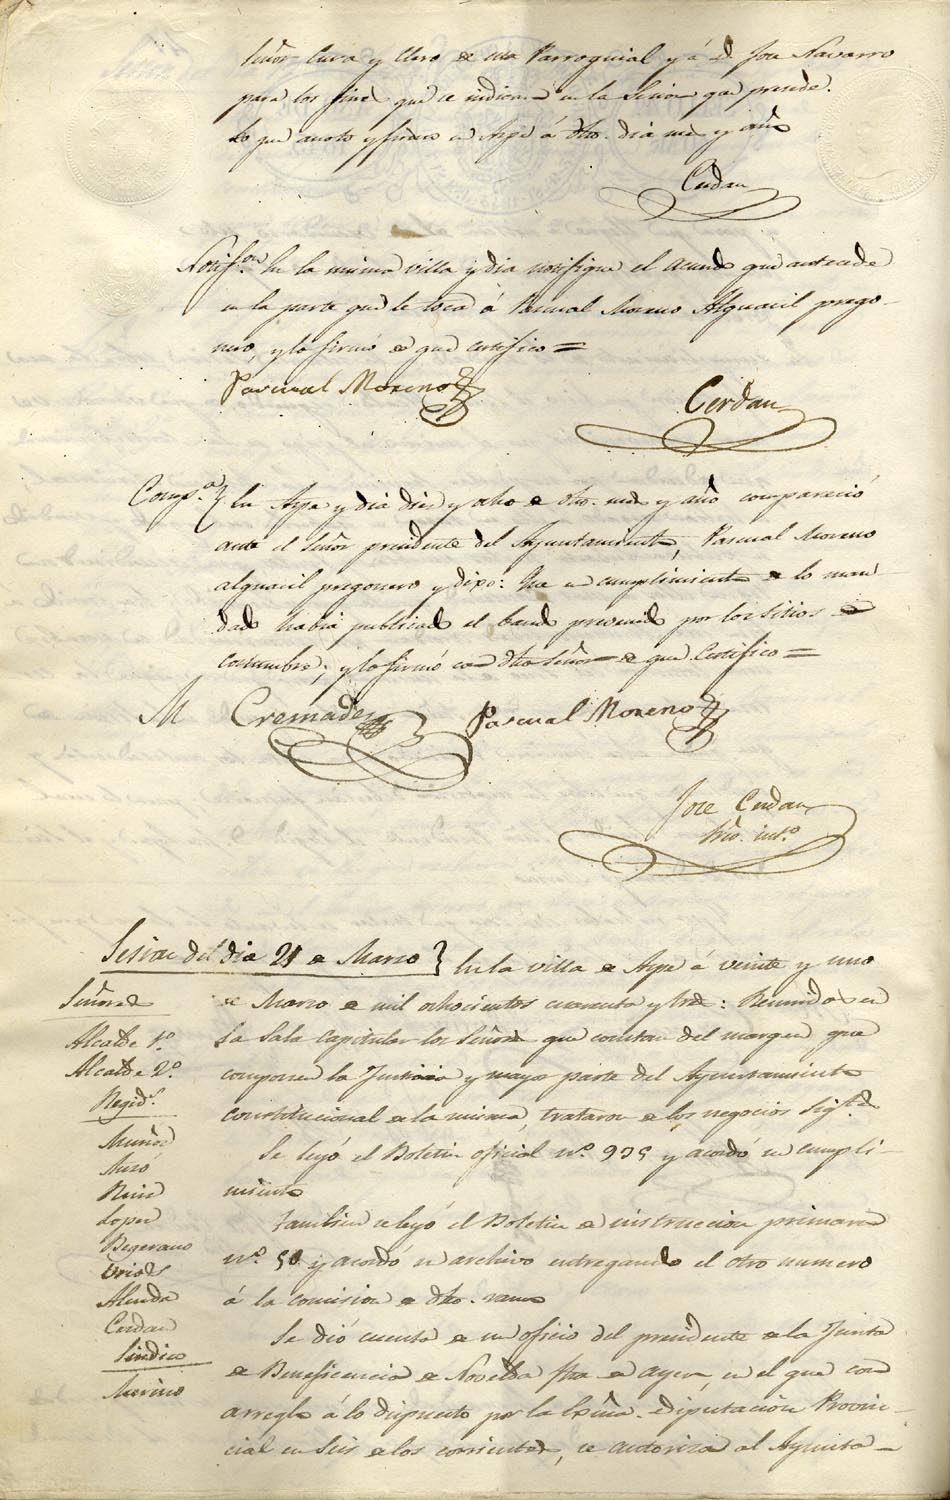 Señor Cura y Clero de esta Parroquial y á D. Jose Navarro
para los fines que se indican en la Sesion que precede.
Lo que anoto y firmo en Aspe á dho. dia mes y año
Cerdan
Notif.on En la misma villa y dia notifique el acuerdo que antecede
en la parte que le toca á Pascual Moreno Alguacil prego-
nero, y lo firmó de que certifico =
Pascual Moreno
Cerdan
Comp.a En Aspe y dia diez y ocho de dho. mes y año compareció
ante el Señor presidente del Ayuntamiento, Pascual Moreno
alguacil pregonero y dixo: Que en cumplimiento de lo man-
dado habia publicado el bando prevenido por los sitios de
costumbre; y lo firmó con dho Señor de que Certifico =
M Cremades Pascual Moreno
Jose Cerdan
Srio. int.o
Sesion del dia 21 de Marzo } En la villa de Aspe á veinte y uno
de Marzo de mil ochocientos cuarenta y tres: Reunidos en
la Sala Capitular los Señores que constan del margen que
componen la Justicia y mayor parte del Ayuntamiento
constitucional de la misma, trataron de los negocios sig.tes
Se leyó el Boletin oficial n.o 935 y acordó su cumpli-
miento
Tambien se leyó el Boletin de instruccion primaria
n.o 50 y acordó su archivo entregando el otro numero
á la comision de dho. ramo
Se dió cuenta de un oficio del presidente de la Junta
de Beneficencia de Novelda fha de ayer, en el que con
arreglo á lo dispuesto por la Exma. Diputacion Provin-
cial en Seis de los corrientes, se autoriza al Ayunta-
Señores
Alcalde 1.o
Alcalde 2.o
Regid.s
Muñoz
Miró
Ruiz
Lopez
Begerano
Urios
Alenda
Cerdan
Sindico
Merino